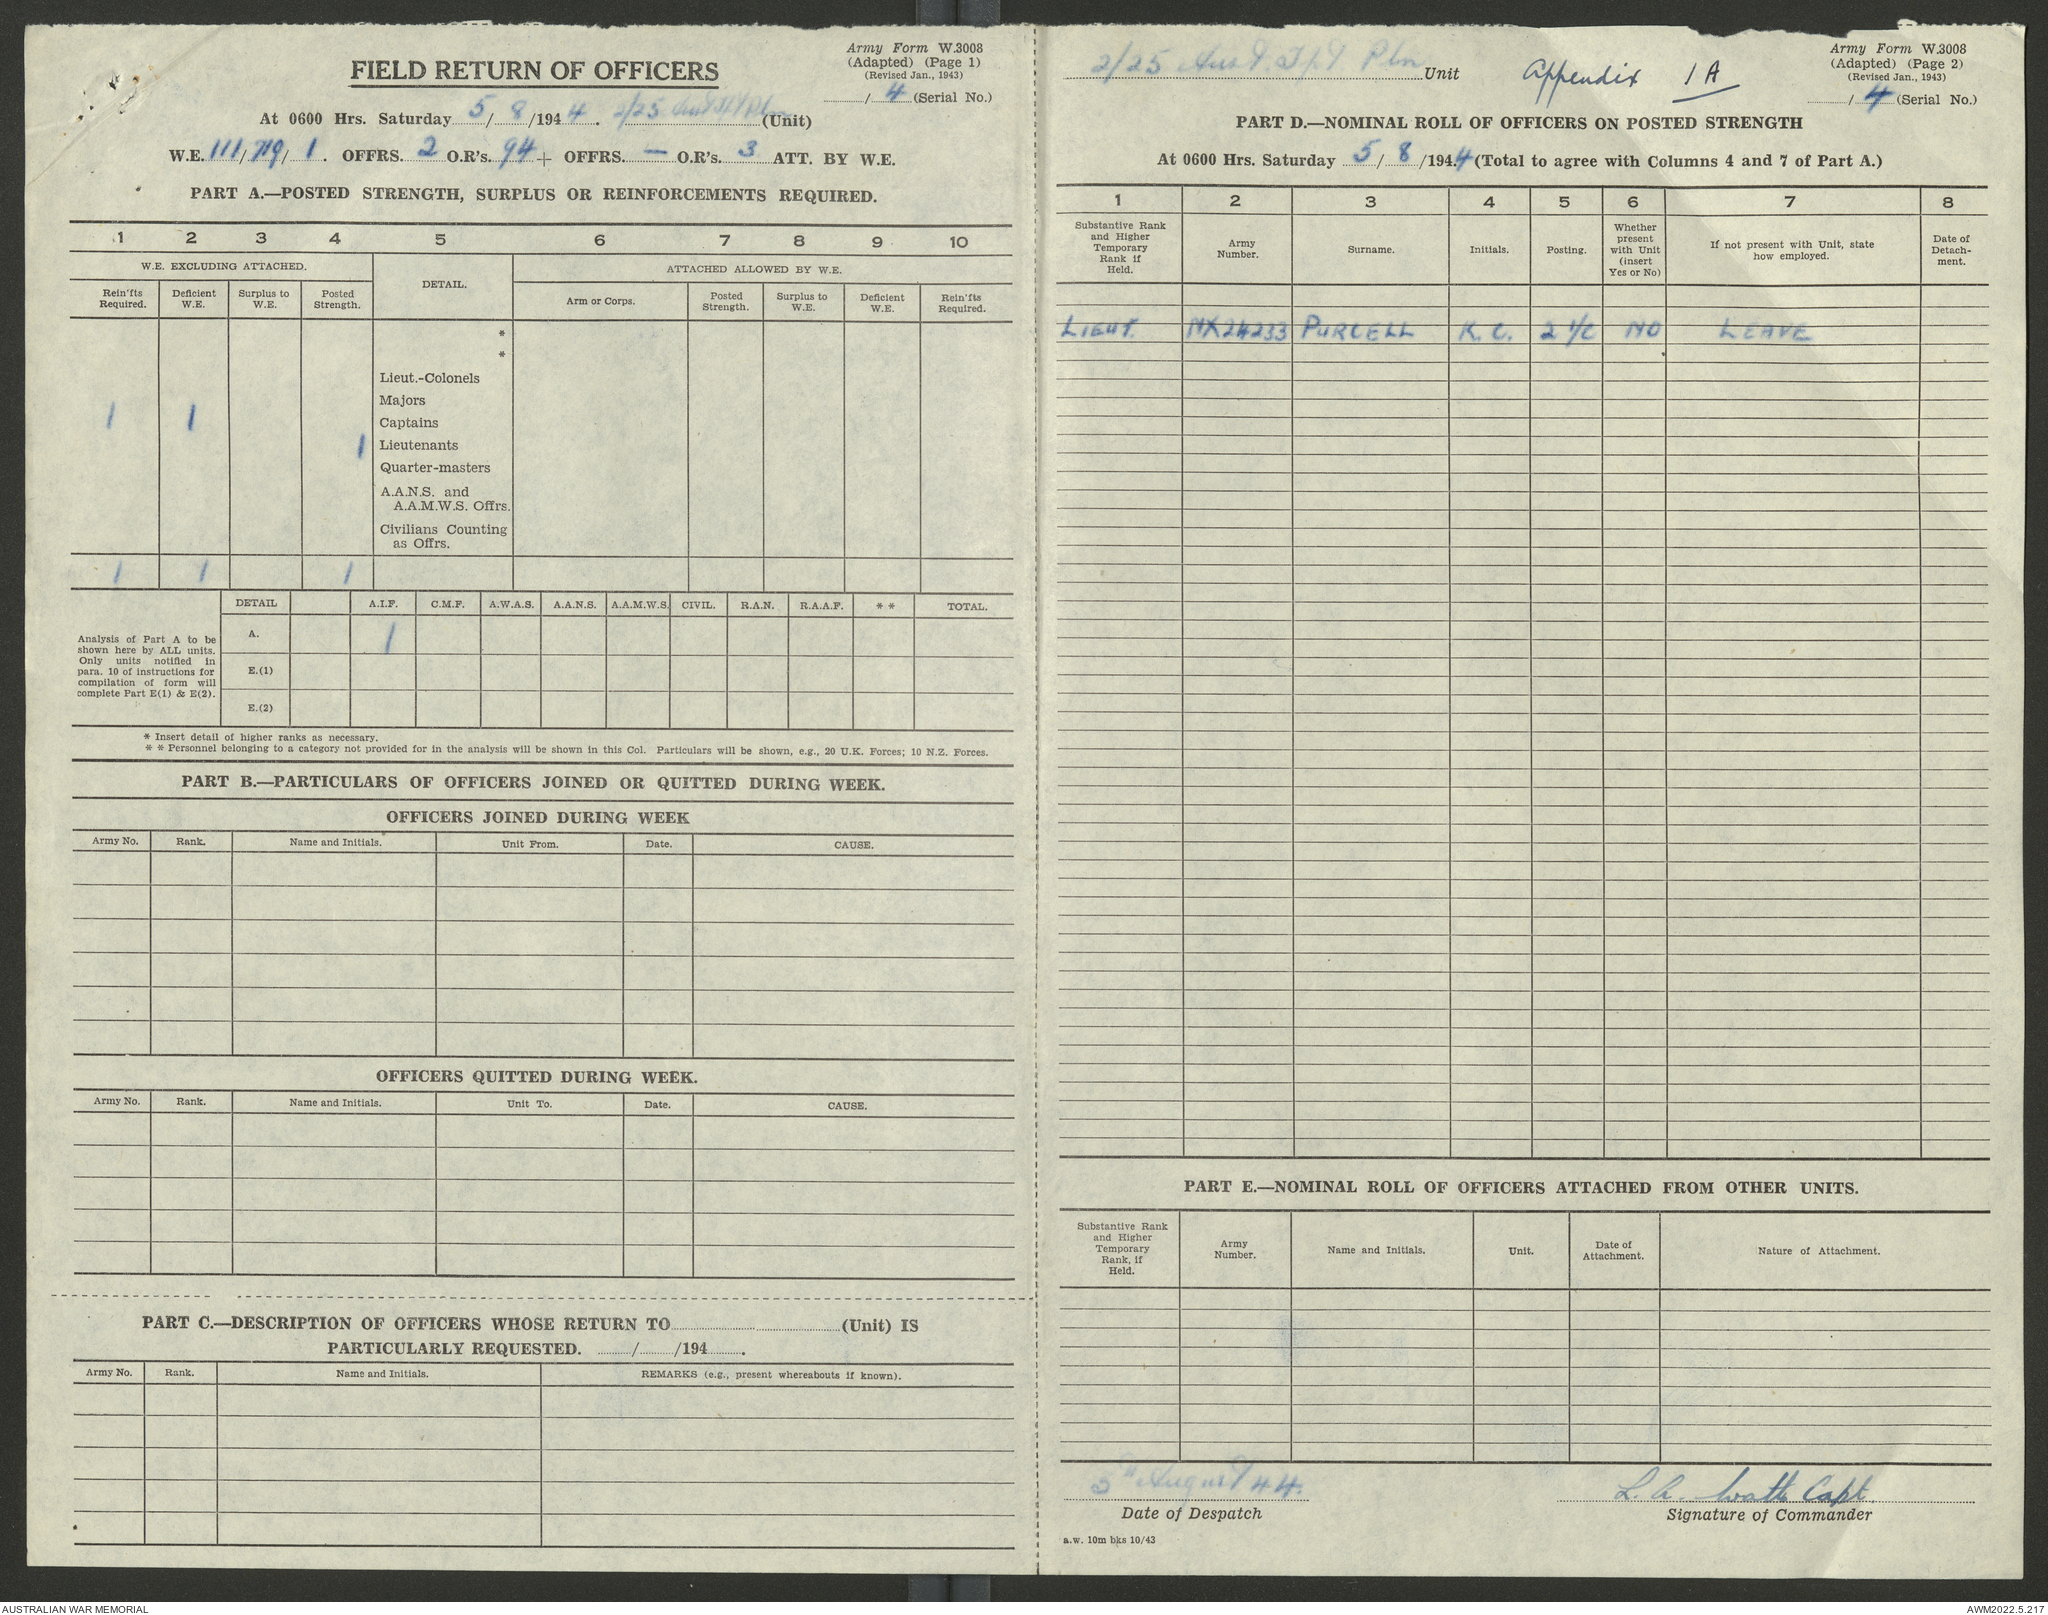 Army Form W.3008
(Adapted) (Page 1)
(Revised Jan., 1943)
FIELD RETURN OF OFFICERS
/ 4 (Serial No.)
At 0600 Hrs. Saturday 5/8/1944. 2/25 (Unit)
W.E. 111/719/1. OFFRS. 2 O.R's. 94 + OFFRS. — O.R's. 3 ATT. BY W.E.
PART A.—POSTED STRENGTH, SURPLUS OR REINFORCEMENTS REQUIRED.
1 2 3 4 5 6 7 8 9 10
W.E. EXCLUDING ATTACHED. DETAIL. ATTACHED ALLOWED BY W.E.
Rein'fts Required. Deficient W.E. Surplus to W.E. Posted Strength. Arm or Corps. Posted Strength. Surplus to W.E. Deficient W.E. Rein'fts Required.
*
*
Lieut.-Colonels
Majors
1 1 Captains
1 Lieutenants
Quarter-masters
A.A.N.S. and
A.A.M.W.S. Offrs.
Civilians Counting
as Offrs.
1 1 1
DETAIL A.I.F. C.M.F. A.W.A.S. A.A.N.S. A.A.M.W.S. CIVIL. R.A.N. R.A.A.F. * * TOTAL.
Analysis of Part A to be
shown here by ALL units.
Only units notified in
para. 10 of instructions for
compilation of form will
complete Part E(1) & E(2).
A. 1
E.(1)
E.(2)
* Insert detail of higher ranks as necessary.
* * Personnel belonging to a category not provided for in the analysis will be shown in this Col. Particulars will be shown, e.g., 20 U.K. Forces; 10 N.Z. Forces.
PART B.—PARTICULARS OF OFFICERS JOINED OR QUITTED DURING WEEK.
OFFICERS JOINED DURING WEEK
Army No. Rank. Name and Initials. Unit From. Date. CAUSE.
OFFICERS QUITTED DURING WEEK.
Army No. Rank. Name and Initials. Unit To. Date. CAUSE.
PART C.—DESCRIPTION OF OFFICERS WHOSE RETURN TO (Unit) IS
PARTICULARLY REQUESTED. / /194 .
Army No. Rank. Name and Initials. REMARKS (e.g., present whereabouts if known).
2/25 Aust. Pln Unit
Appendix 1A
Army Form W.3008
(Adapted) (Page 2)
(Revised Jan., 1943)
/ 4 (Serial No.)
PART D.—NOMINAL ROLL OF OFFICERS ON POSTED STRENGTH
At 0600 Hrs. Saturday 5/8/1944 (Total to agree with Columns 4 and 7 of Part A.)
1 2 3 4 5 6 7 8
Substantive Rank and Higher Temporary Rank if Held. Army Number. Surname. Initials. Posting. Whether present with Unit (insert Yes or No) If not present with Unit, state how employed. Date of Detach-ment.
LIEUT. NX24233 PURCELL K. C. 2 I/C NO LEAVE
PART E.—NOMINAL ROLL OF OFFICERS ATTACHED FROM OTHER UNITS.
Substantive Rank and Higher Temporary Rank, if Held. Army Number. Name and Initials. Unit. Date of Attachment. Nature of Attachment.
5th August 44.
Date of Despatch
L. A. Capt.
Signature of Commander
a.w. 10m bks 10/43
AUSTRALIAN WAR MEMORIAL
AWM2022.5.217